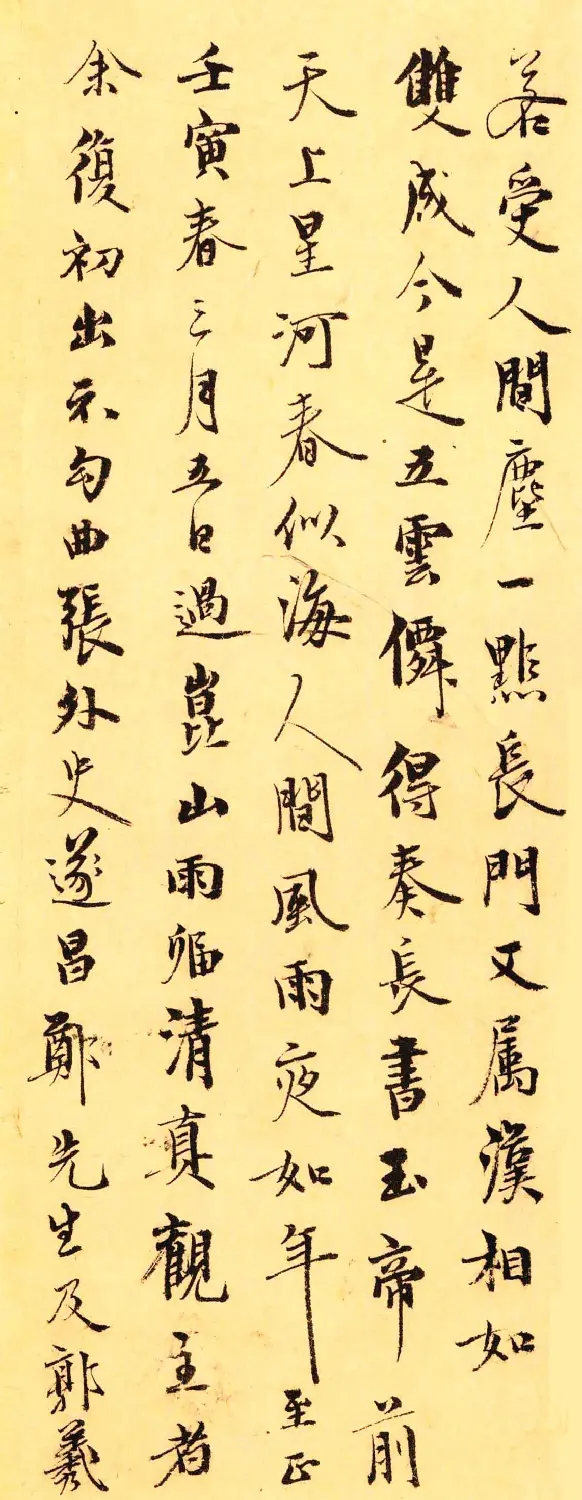 若受人間塵一點長門又属漢相如
雙成今是五雲僊得奏長書玉帝前
天上星河春似海人間風雨夜如年至正
壬寅春三月五日過崑山雨宿清真觀主者
余復初出示勾曲張外史遂昌鄭先生及郭羲